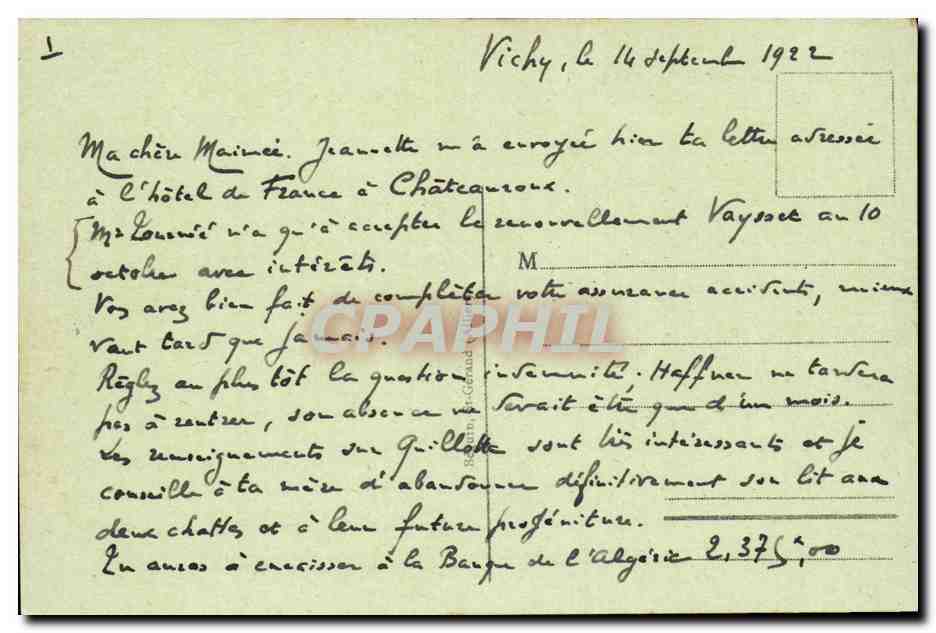 1
Vichy, le 14 septembre 1922
Ma chère Maimée. Jeannette m'a envoyée hier ta lettre adressée
à l'hôtel de France à Châteauroux.
Mr Tournié n'a qu'à accepter le renouvellement Vaysset au 10
octobre avec intérêts.
M
Vous avez bien fait de complèter votre assurance accidents, mieux
vaut tard que jamais.
CPAPHIL
Réglez au plus tôt la question indemnité; Haffner ne tardera
pas à rentrer, son absence ne devait être que d'un mois.
Les renseignements sur Guillotte sont très intéressants et je
conseille à ta mère d'abandonner définitivement son lit aux
deux chattes et à leur future progéniture.
Tu auras à encaisser à la Banque de l'Algérie 2.375f,00